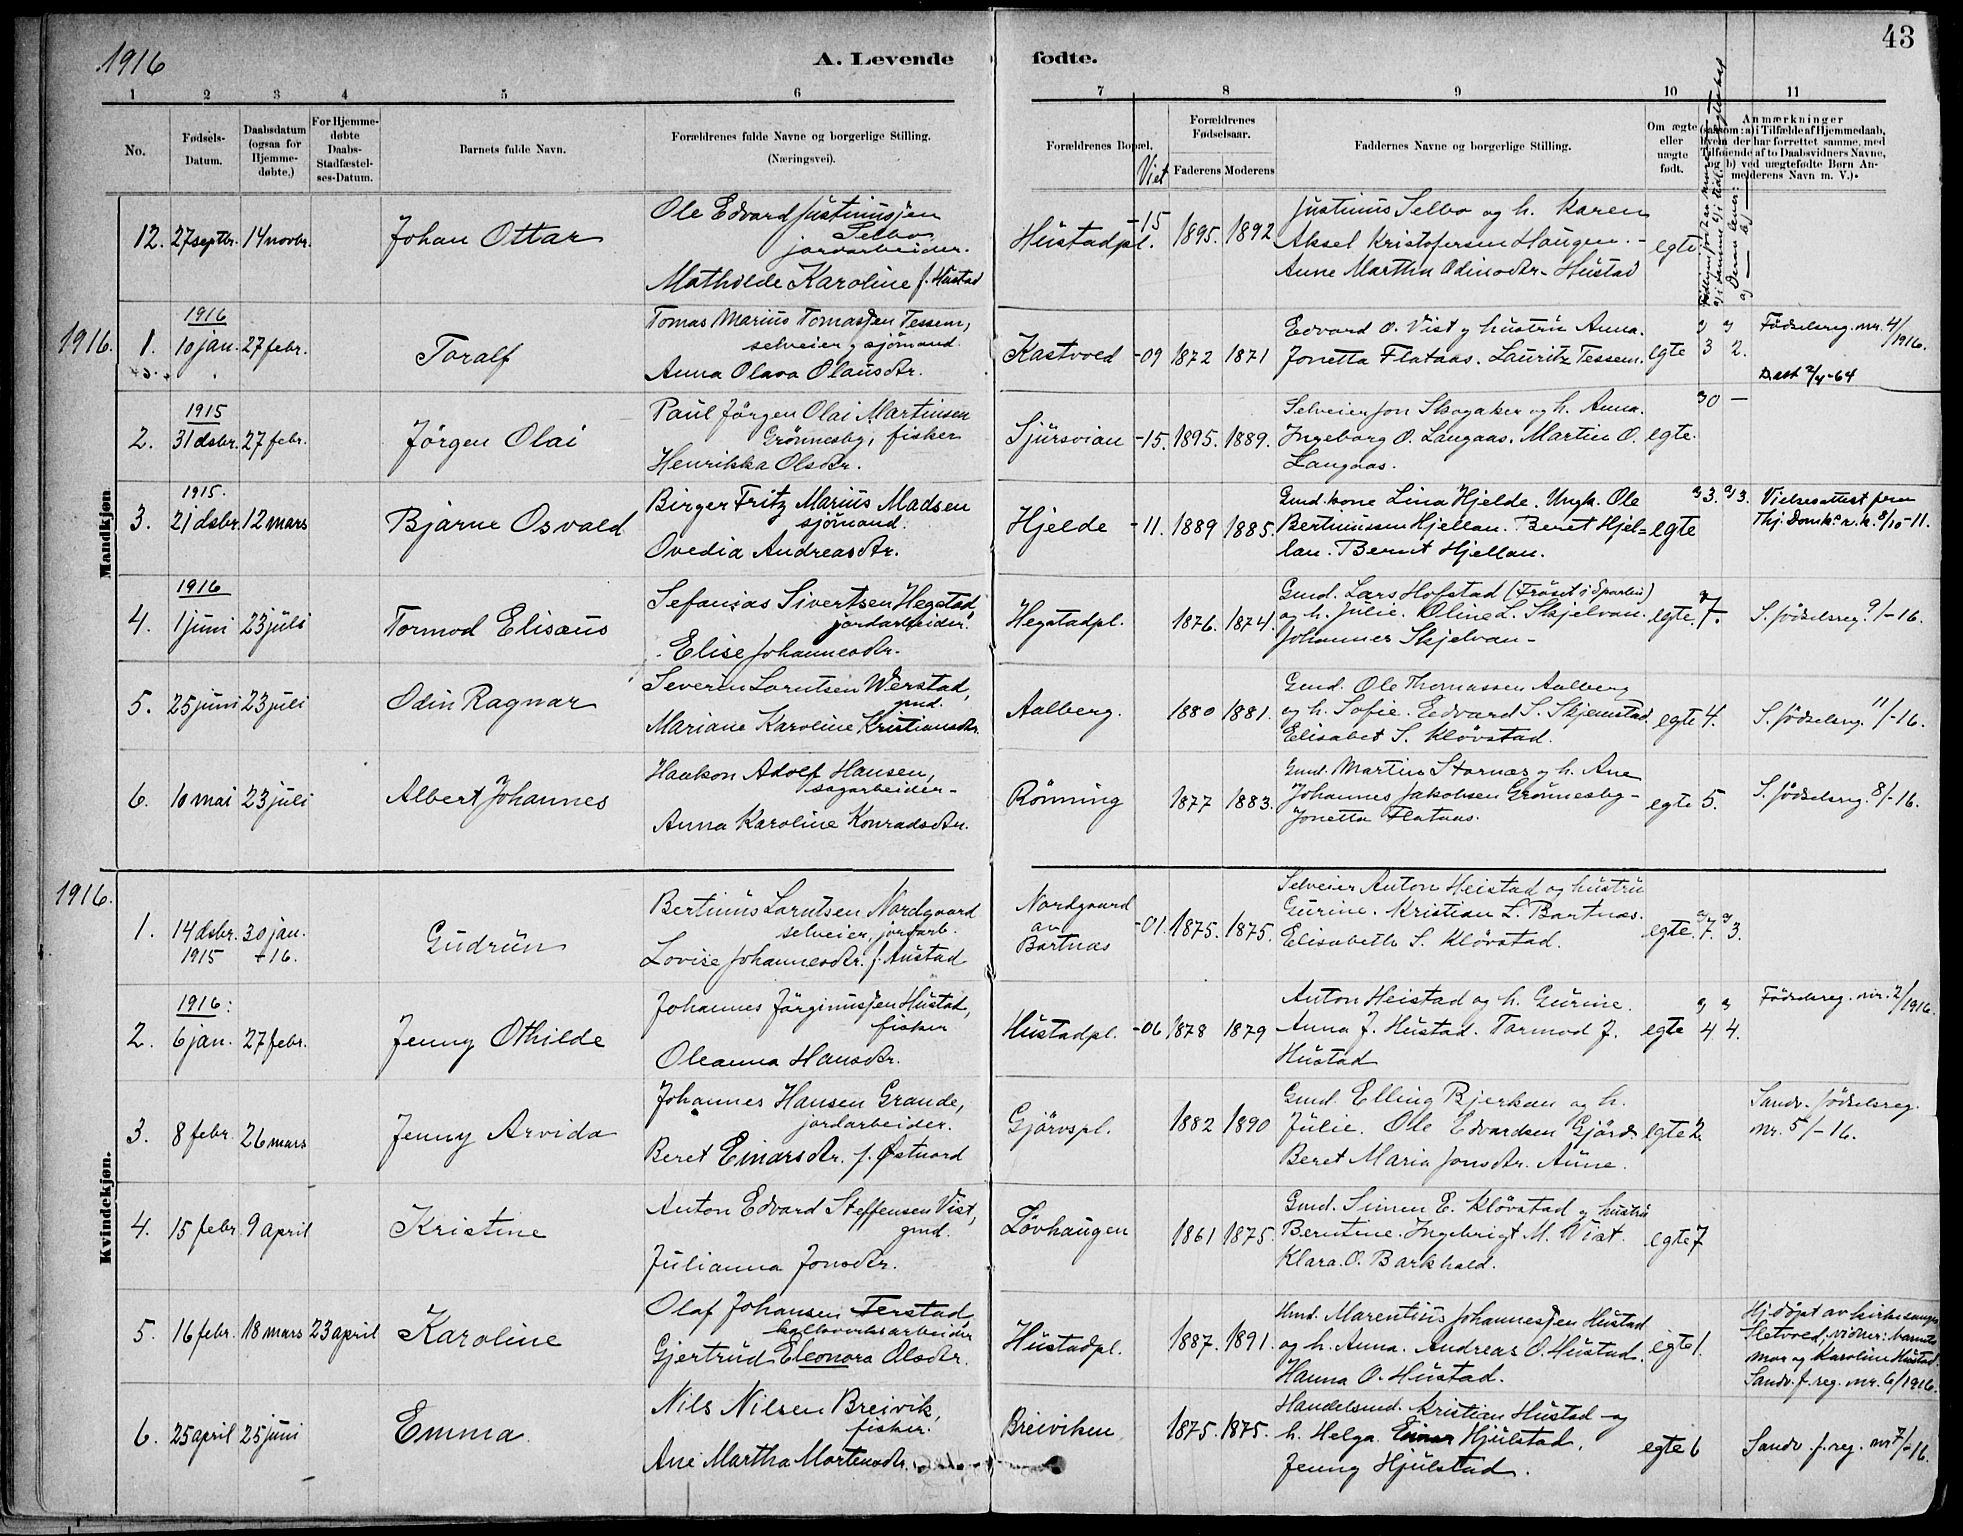 1916
A. Levende fødte.
43
1 2 3 4 5 6 7 8 9 10 11
No.
Fødsels-
Datum.
Daabsdatum
(ogsaa for
Hjemme-
døbte.)
For Hjemme-
døbte
Daabs-
Stadfæstel-
ses-Datum.
Barnets fulde Navn.
Forældrenes fulde Navne og borgerlige Stilling.
(Næringsvei).
Forældrenes Bopæl.
Viet
Forældrenes
Fødselsaar.
Faderens Moderens
Faddernes Navne og borgerlige Stilling.
Om ægte
eller
uægte
født.
Anmærkninger
(saasom: a) i Tilfælde af Hjemmedaab,
hvem der har forrettet samme, med
Tilføiende af to Daabsvidners Navne,
og b) ved uægtefødte Børn An-
melderens Navn m. V.).
Mandkjøn
12. 27 septbr. 14 novbr.
Johan Ottar
Ole Edvard Justinussen
Selbo
jordarbeider.
Mathilde Karoline f. Hustad
Hustadpl. -15 1895. 1892
Justinus Selbo og h. Karen
Aksel Kristofersen Haugen. -
Anne Martha Odinsdtr. Hustad
egte
1916. 1. 1916
10 jan. 27 febr.
Toralf
Tomas Marius Tomassen Tessem,
selveier og sjömand.
Anna Olava Olausdtr.
Kastvoed -09 1872 1871
Edvard O. Vist og hustru Anna.
Jonetta Flataas. Lauritz Tessem.
egte 3 2.
Födselsreg. nr. 4/1916.
Dåst 2/4-64
2. 1915
31 dsbr. 27 febr.
Jörgen Olai
Paul Jörgen Olai Martinsen
Grönnesby, fisker
Henrikka Olsdtr.
Sjursvian -15. 1895. 1889.
Selveier Jon Skogaker og h. Anna.
Ingeborg O. Langaas. Martin O.
Langaas.
egte. 0 -
3. 1915.
21 dsbr. 12 mars
Bjarne Osvald
Birger Fritz Marius Madsen
sjömand.
Ovedia Andreasdtr.
Hjelde -11. 1889 1885.
Gmd.kone Lina Hjelde. Ungk. Ole
Bertinussen Hjellan. Beret Hjel=
lan. Bernt Hjellan.
egte 3. 3.
Vielsesattest fra
Thj. Domk. 8/10-11.
4. 1916
1 juni 23 juli
Tormod Elisæus
Sefanias Sivertsen Hegstad,
jordarbeider.
Elise Johannesdtr.
Hegstadpl. 1876. 1874.
Gmd. Lars Hofstad
og h. Julie. Oline L. Skjelvan.
Johannes Skjelvan -
egte. 7.
S. födselsreg. 9/-16.
5. 25 juni 23 juli
Odin Ragnar
Severin Lorntsen Werstad,
gmd.
Mariane Karoline Kristiansdtr.
Aalberg. 1880 1881.
Gmd. Ole Thomassen Aalberg
og h. Sofie. Edvard S. Skjemstad.
Elisabet S. Klövstad.
egte 4.
S. födselsreg. 11/-16.
6. 10 mai 23 juli
Albert Johannes
Haakon Adolf Hansen,
sagarbeider -
Anna Karoline Konradsdtr.
Rönning 1877 1883.
Gmd. Martin Stornæs og h. Ane
Johannes Jakobsen Grönnesby -
Jonetta Flataas.
egte 5.
S. födselsreg. 8/-16.
Kvindekjøn.
1916.
1. 14 dsbr. 30 jan.
1915 -16.
Gudrun
Bertinus Lorntsen Nordgaard
selveier, jordarb.
Lovise Johannesdtr. f. Austad
Nordgaard
av
Bartnas
-01. 1875. 1875.
Selveier Anton Heistad og hustru
Gurine. Kristian L. Bartnas.
Elisabeth S. Klövstad.
egte. 7. 3.
2. 1916:
6 jan. 27 febr.
Jenny Othilde
Johannes Jörginussen Hustad,
fisker
Oleanna Hansdtr.
Hustadpl. -06 1878 1879
Anton Heistad og h. Gurine.
Anna J. Hustad. Tormod J.
Hustad
egte 4 4.
Födselsreg. nr. 2/1916.
3. 8 febr. 26 mars
Jenny Arvida
Johannes Hansen Grande,
jordarbeider.
Beret Einarsdtr. f. Østnord
Gjörvspl. 1882 1890
Gmd. Elling Bjerkan og h.
Julie. Ole Edvardsen Gjörv.
Beret Maria Jonsdtr. Aune.
egte 2.
Sandv. födselsreg.
nr. 5/-16.
4. 15 febr. 9 april
Kristine
Anton Edvard Steffensen Vist,
gmd.
Julianna Jonsdtr.
Lövhaugen 1861 1875.
Gmd. Simen E. Klövstad og hustru
Berntine. Ingebrigt M. Vist.
Klara O. Barkhald.
egte 7
5. 16 febr. 18 mars 23 april
Karoline
Olaf Johansen Terstad,
kalkverksarbeider
Gjertrud Eleonora Olsdtr.
Hustadpl. 1887. 1891.
Hmd. Marentius Johannessen Hustad
og h. Anna. Andreas O. Hustad.
Hanna O. Hustad.
egte 1.
Hj.döpt av kirkesanger
Hetvoed, vidner: barnets
mor og Karoline Hustad.
Sandv. f. reg. nr. 6/1916.
6. 25 april 25 juni
Emma
Nils Nilsen Breivik,
fisker.
Ane Martha Mortensdtr.
Breiviken 1875. 1875.
Handelsmd. Kristian Hustad og
h. Helga. Einar Hjulstad.
Jenny Hjulstad.
egte 6
Sandv. f. reg. nr. 7/-16.